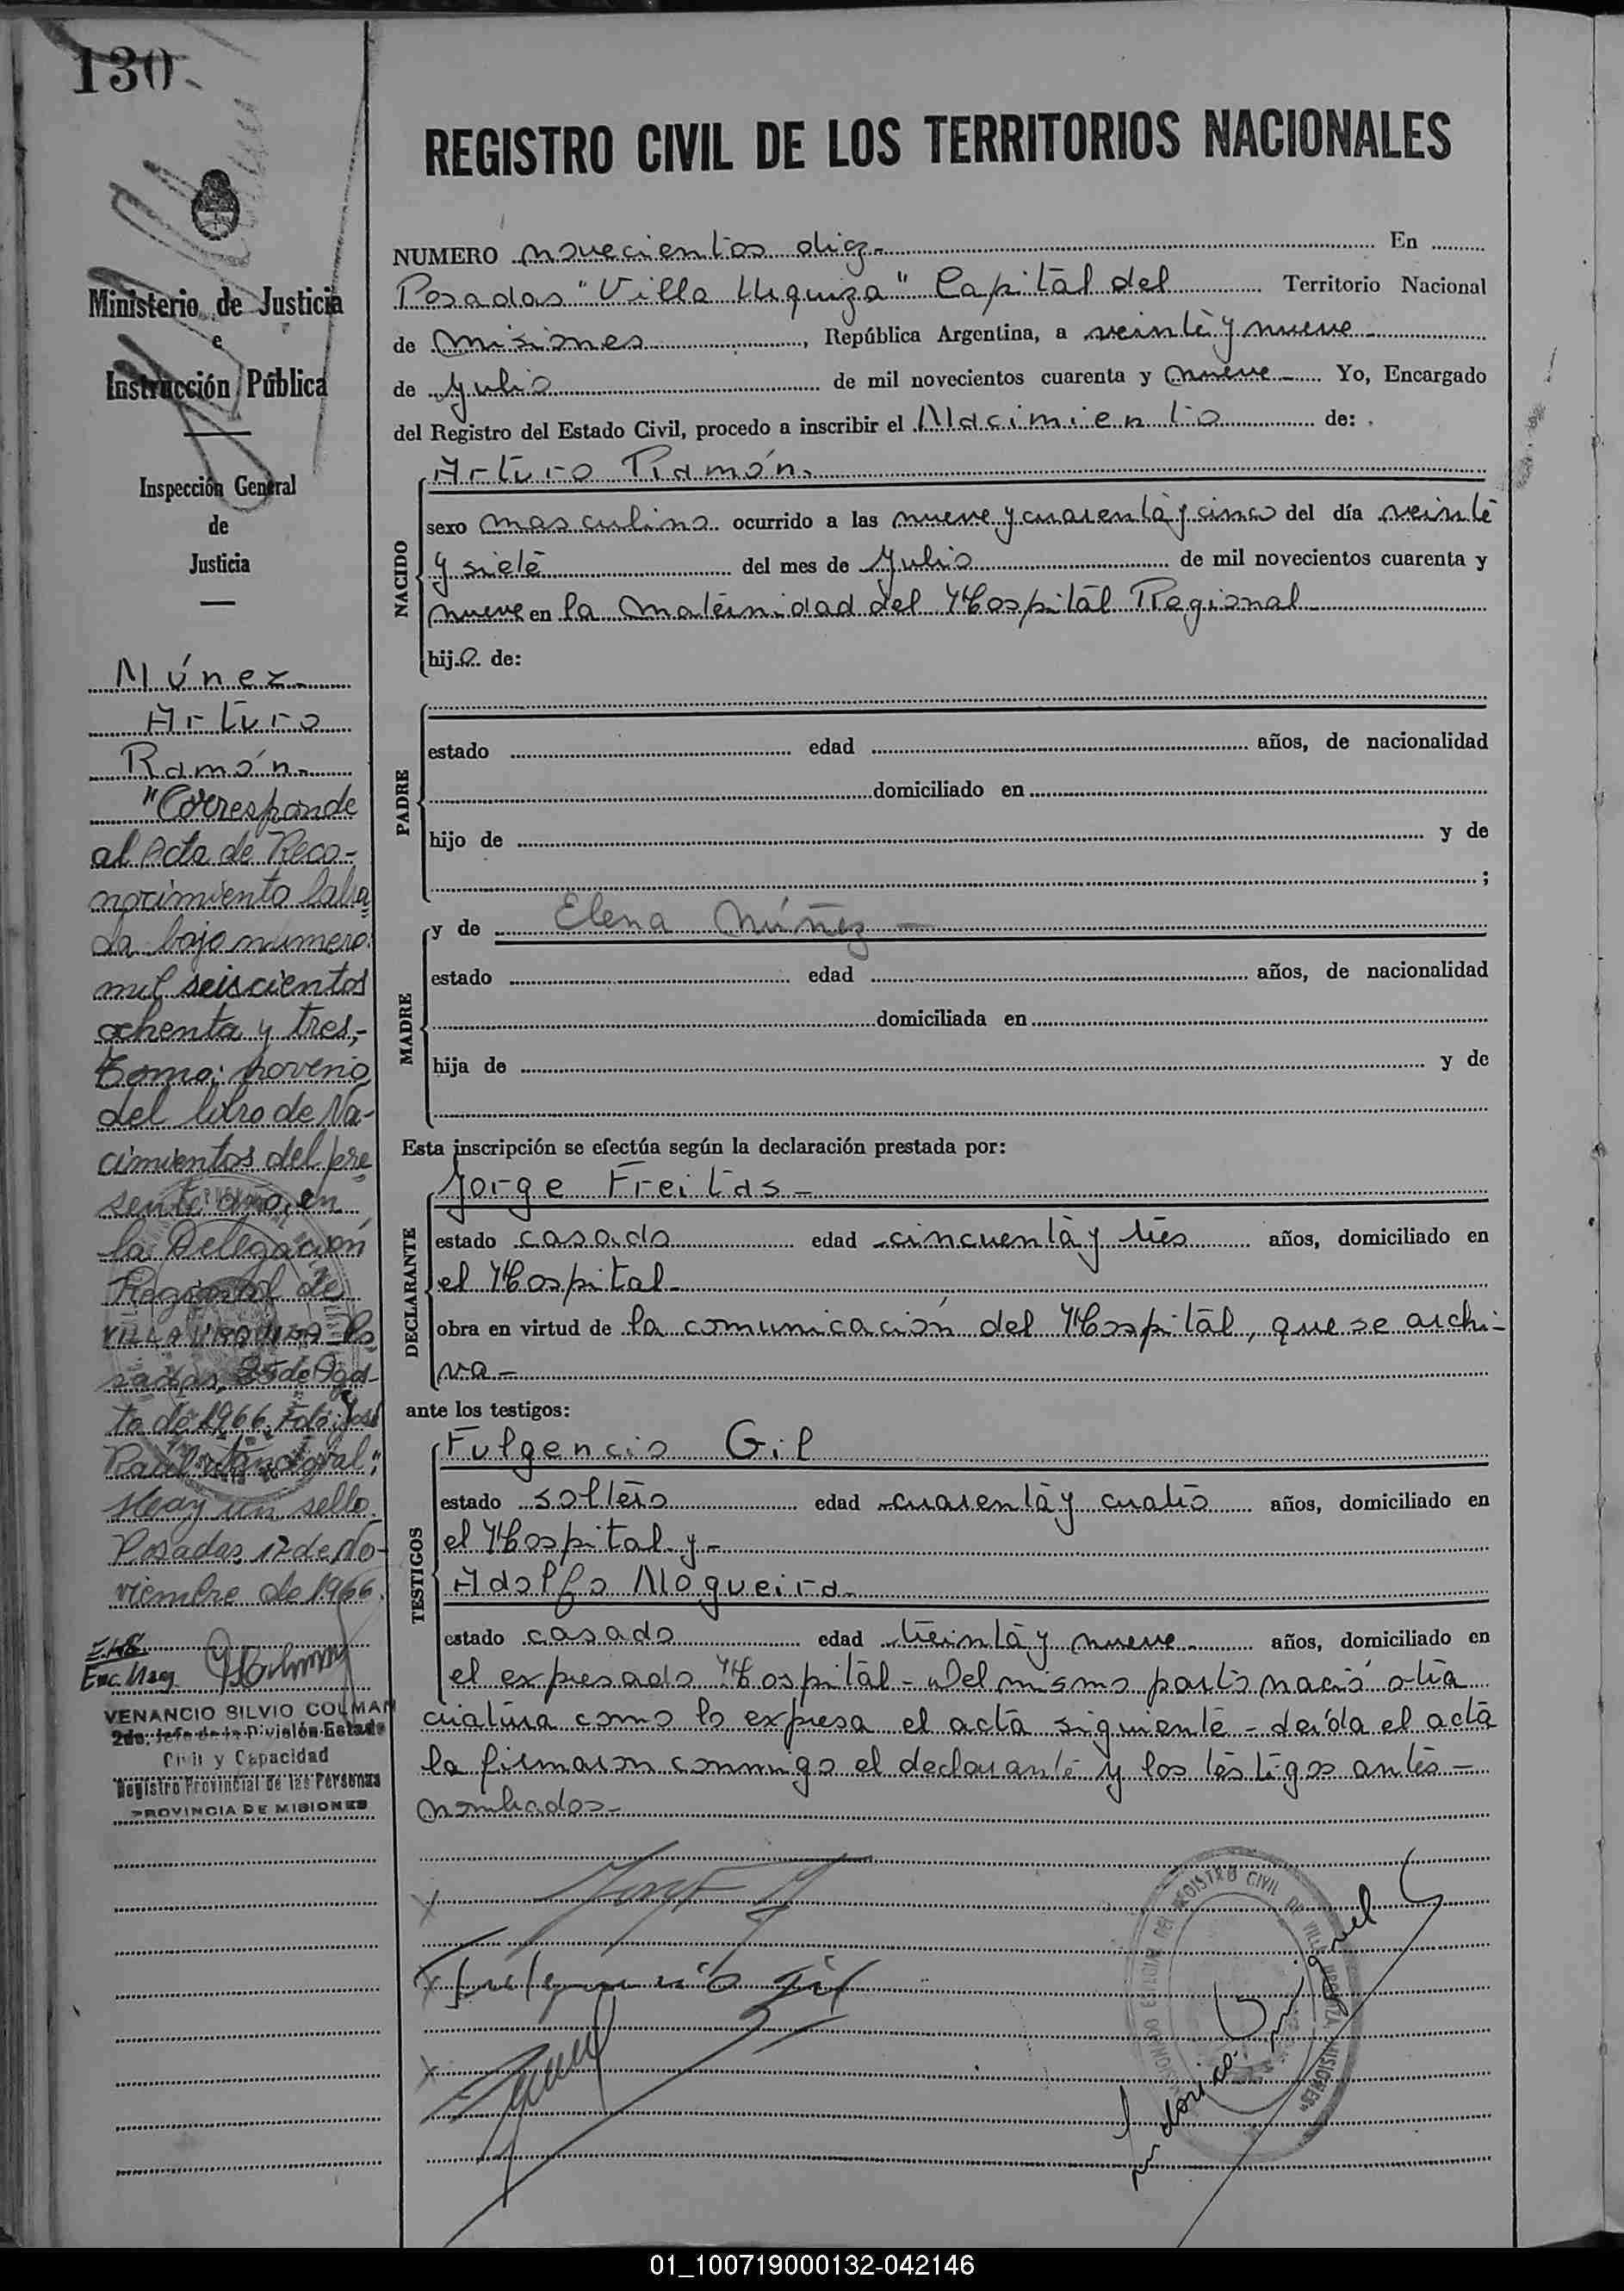 130
Ministerio de Justicia
e
Instrucción Pública
Inspección General
de
Justicia
Núnez
Arturo
Ramón.
"Corresponde
al Acta de Reco-
nocimiento labra
da bajo número
mil seiscientos
ochenta y tres,-
Tomo: noveno
del libro de Na-
cimientos del pre
sente año, en
la Delegación
Regional de
Villa Urquiza Po
sadas, 25 de Agos-
to de 1966. Fdo: José
Raúl Sandoval";
Hay un sello.
Posadas 12 de No-
viembre de 1966.
Enc. Mag
VENANCIO SILVIO COLMAN
2do. Jefe de la División Estado
Civil y Capacidad
Registro Provincial de las Personas
PROVINCIA DE MISIONES
REGISTRO CIVIL DE LOS TERRITORIOS NACIONALES
NUMERO novecientos diez.- En
Posadas "Villa Urquiza" Capital del Territorio Nacional
de misiones, República Argentina, a veinte y nueve
de Julio de mil novecientos cuarenta y nueve - Yo, Encargado
del Registro del Estado Civil, procedo a inscribir el Nacimiento de:
NACIDO
Arturo Ramón.
sexo masculino ocurrido a las nueve y cuarenta y cinco del día veinte
y siete del mes de Julio de mil novecientos cuarenta y
nueve en la maternidad del Hospital Regional
hijo de:
PADRE
estado edad años, de nacionalidad
domiciliado en
hijo de y de
;
MADRE
y de Elena Núñez -
estado edad años, de nacionalidad
domiciliada en
hija de y de
Esta inscripción se efectúa según la declaración prestada por:
DECLARANTE
Jorge Freitas -
estado casado edad cincuenta y tres años, domiciliado en
el Hospital
obra en virtud de la comunicación del Hospital, que se archi-
va -
ante los testigos:
TESTIGOS
Fulgencio Gil
estado soltero edad cuarenta y cuatro años, domiciliado en
el Hospital y -
Adolfo Nogueira
estado casado edad treinta y nueve años, domiciliado en
el expresado Hospital - Del mismo parto nació otra
criatura como lo expresa el acta siguiente - leída el acta
la firmaron conmigo el declarante y los testigos antes -
nombrados -
Fulgencio Gil
REGISTRO CIVIL DE VILLA URQUIZA MISIONES
01_100719000132-042146